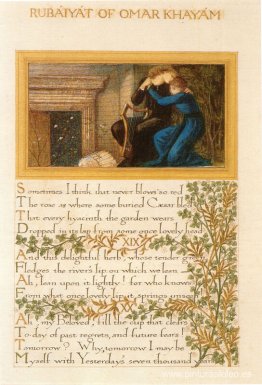 RUBÁIYÁT OF OMAR KHAYÁM
Sometimes I think that never blows so red
The rose as where some buried Cæsar bled
That every hyacinth the garden wears
Dropped in its lap from some once lovely head
XIX
And this delightful herb, whose tender green
Fledges the river's lip on which we lean
Ah, lean upon it lightly! for who knows
From what once lovely lip it springs unseen
Ah, my Beloved, fill the cup that clears
To-day of past regrets and future fears
Tomorrow? Why, tomorrow I may be
Myself with Yesterday's seven thousand years
www.pinturasaoleo.es